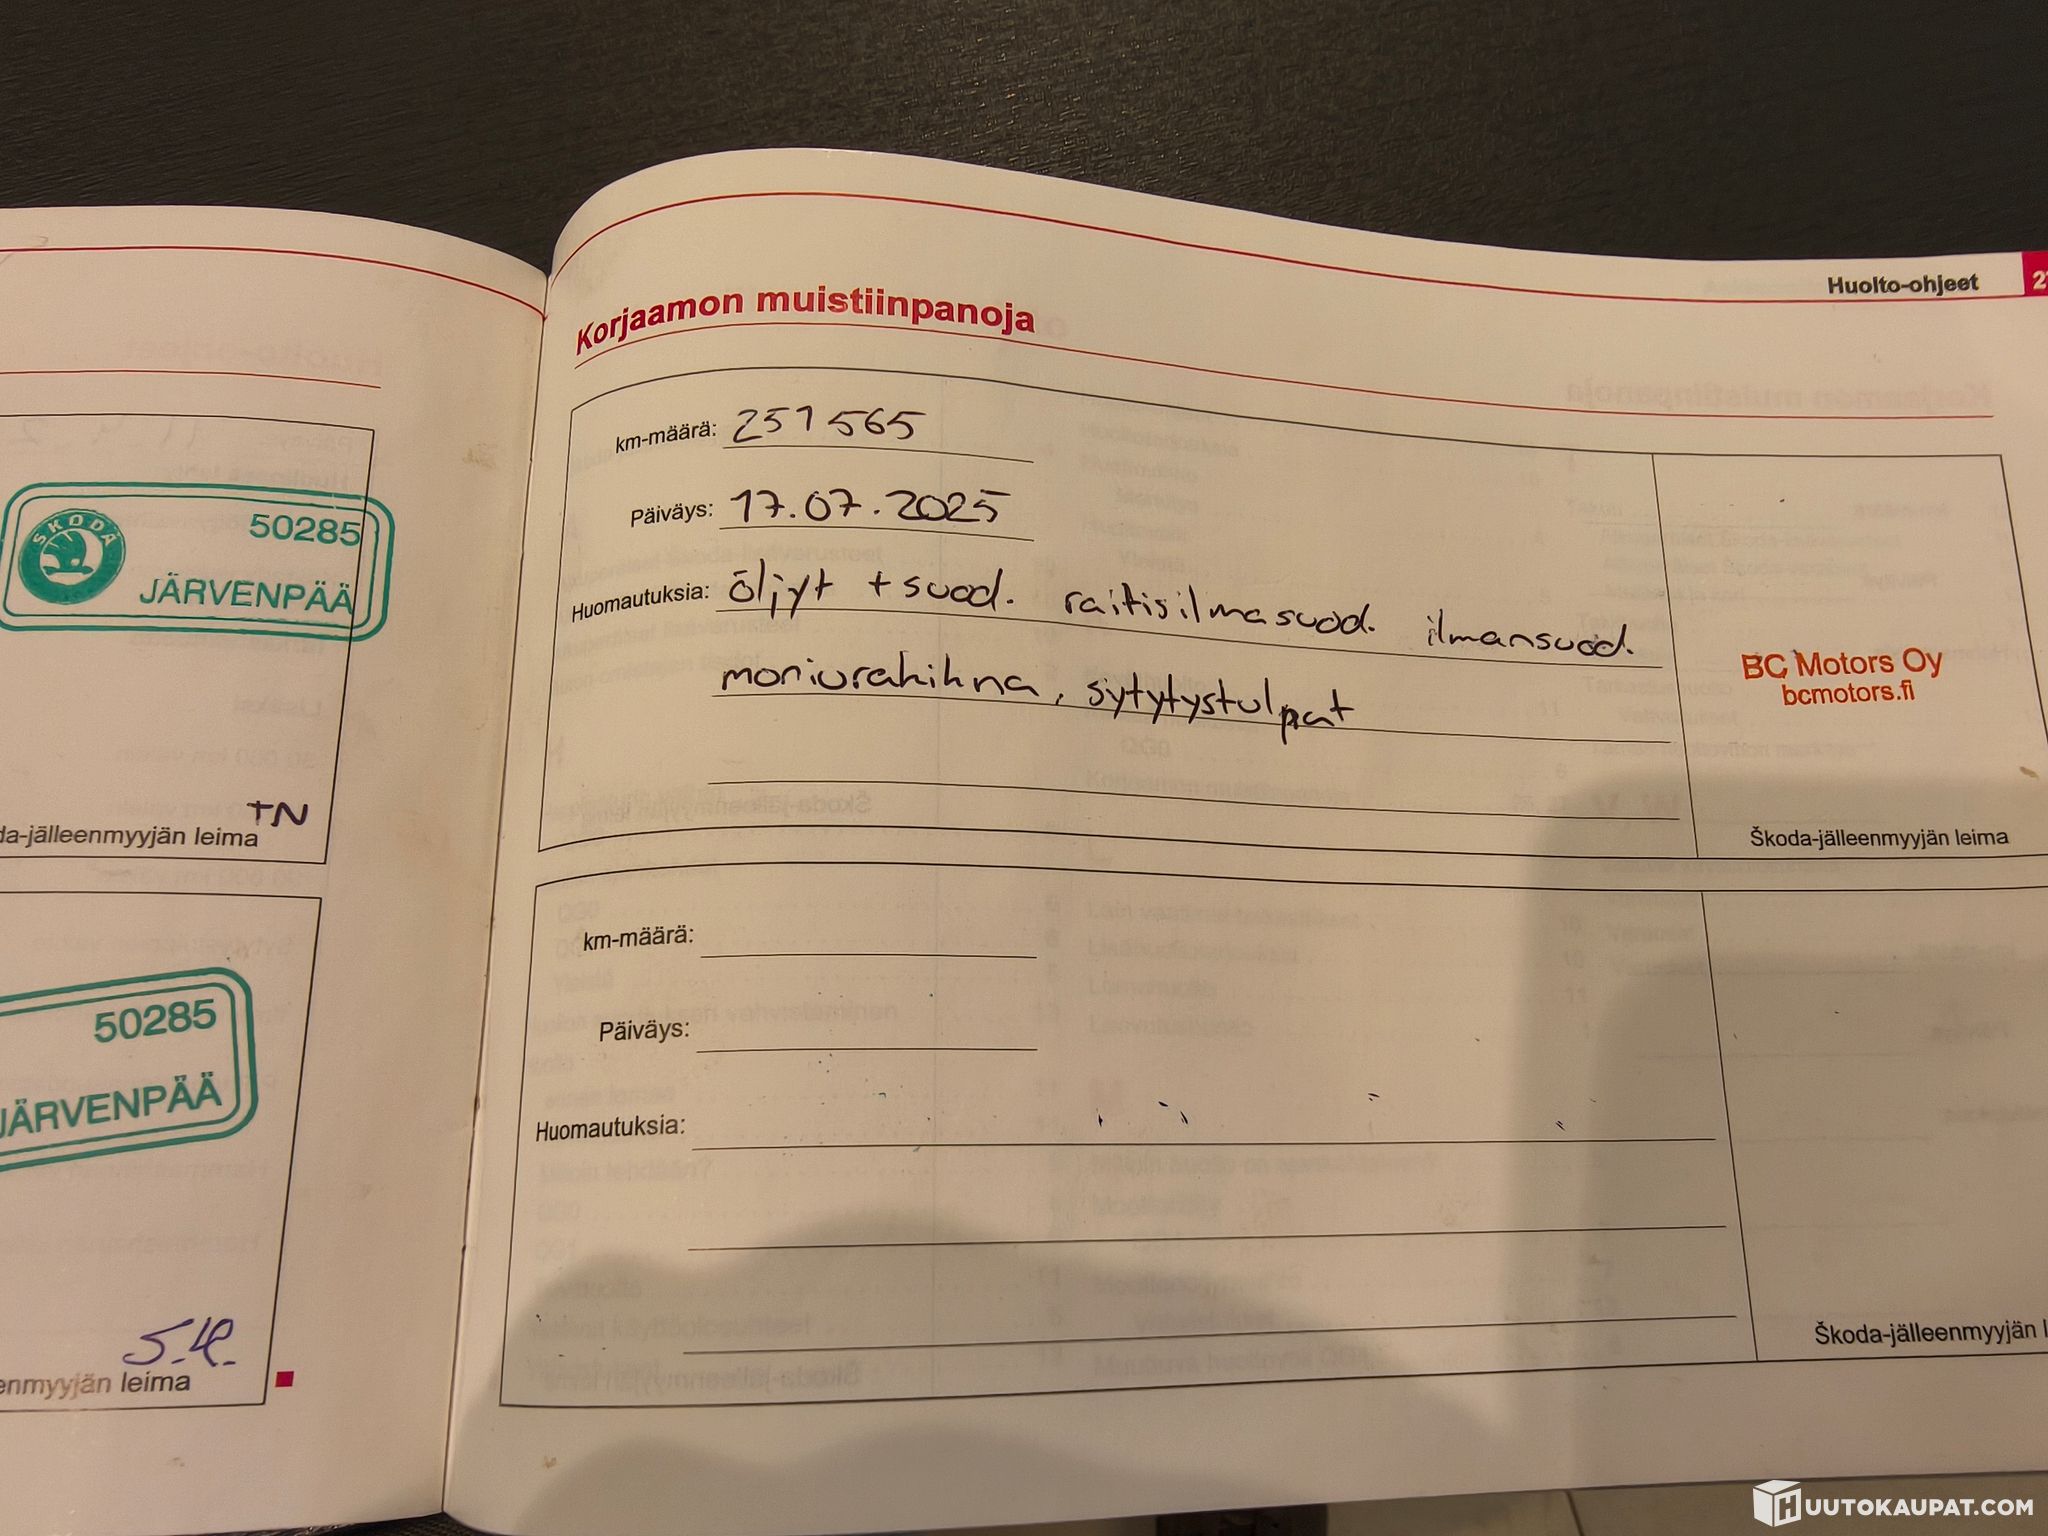 SKODA
50285
JÄRVENPÄÄ
TN
jälleenmyyjän leima
50285
JÄRVENPÄÄ
S.K.
leima
Huolto-ohjeet
Korjaamon muistiinpanoja
km-määrä: 251 565
Päiväys: 17.07.2025
Huomautuksia: öljyt + suod. raitisilmasuod. ilmansuod.
moniurahihna, sytytystulpat
BC Motors Oy
bcmotors.fi
Škoda-jälleenmyyjän leima
km-määrä:
Päiväys:
Huomautuksia:
Škoda-jälleenmyyjän
HUUTOKAUPAT.COM